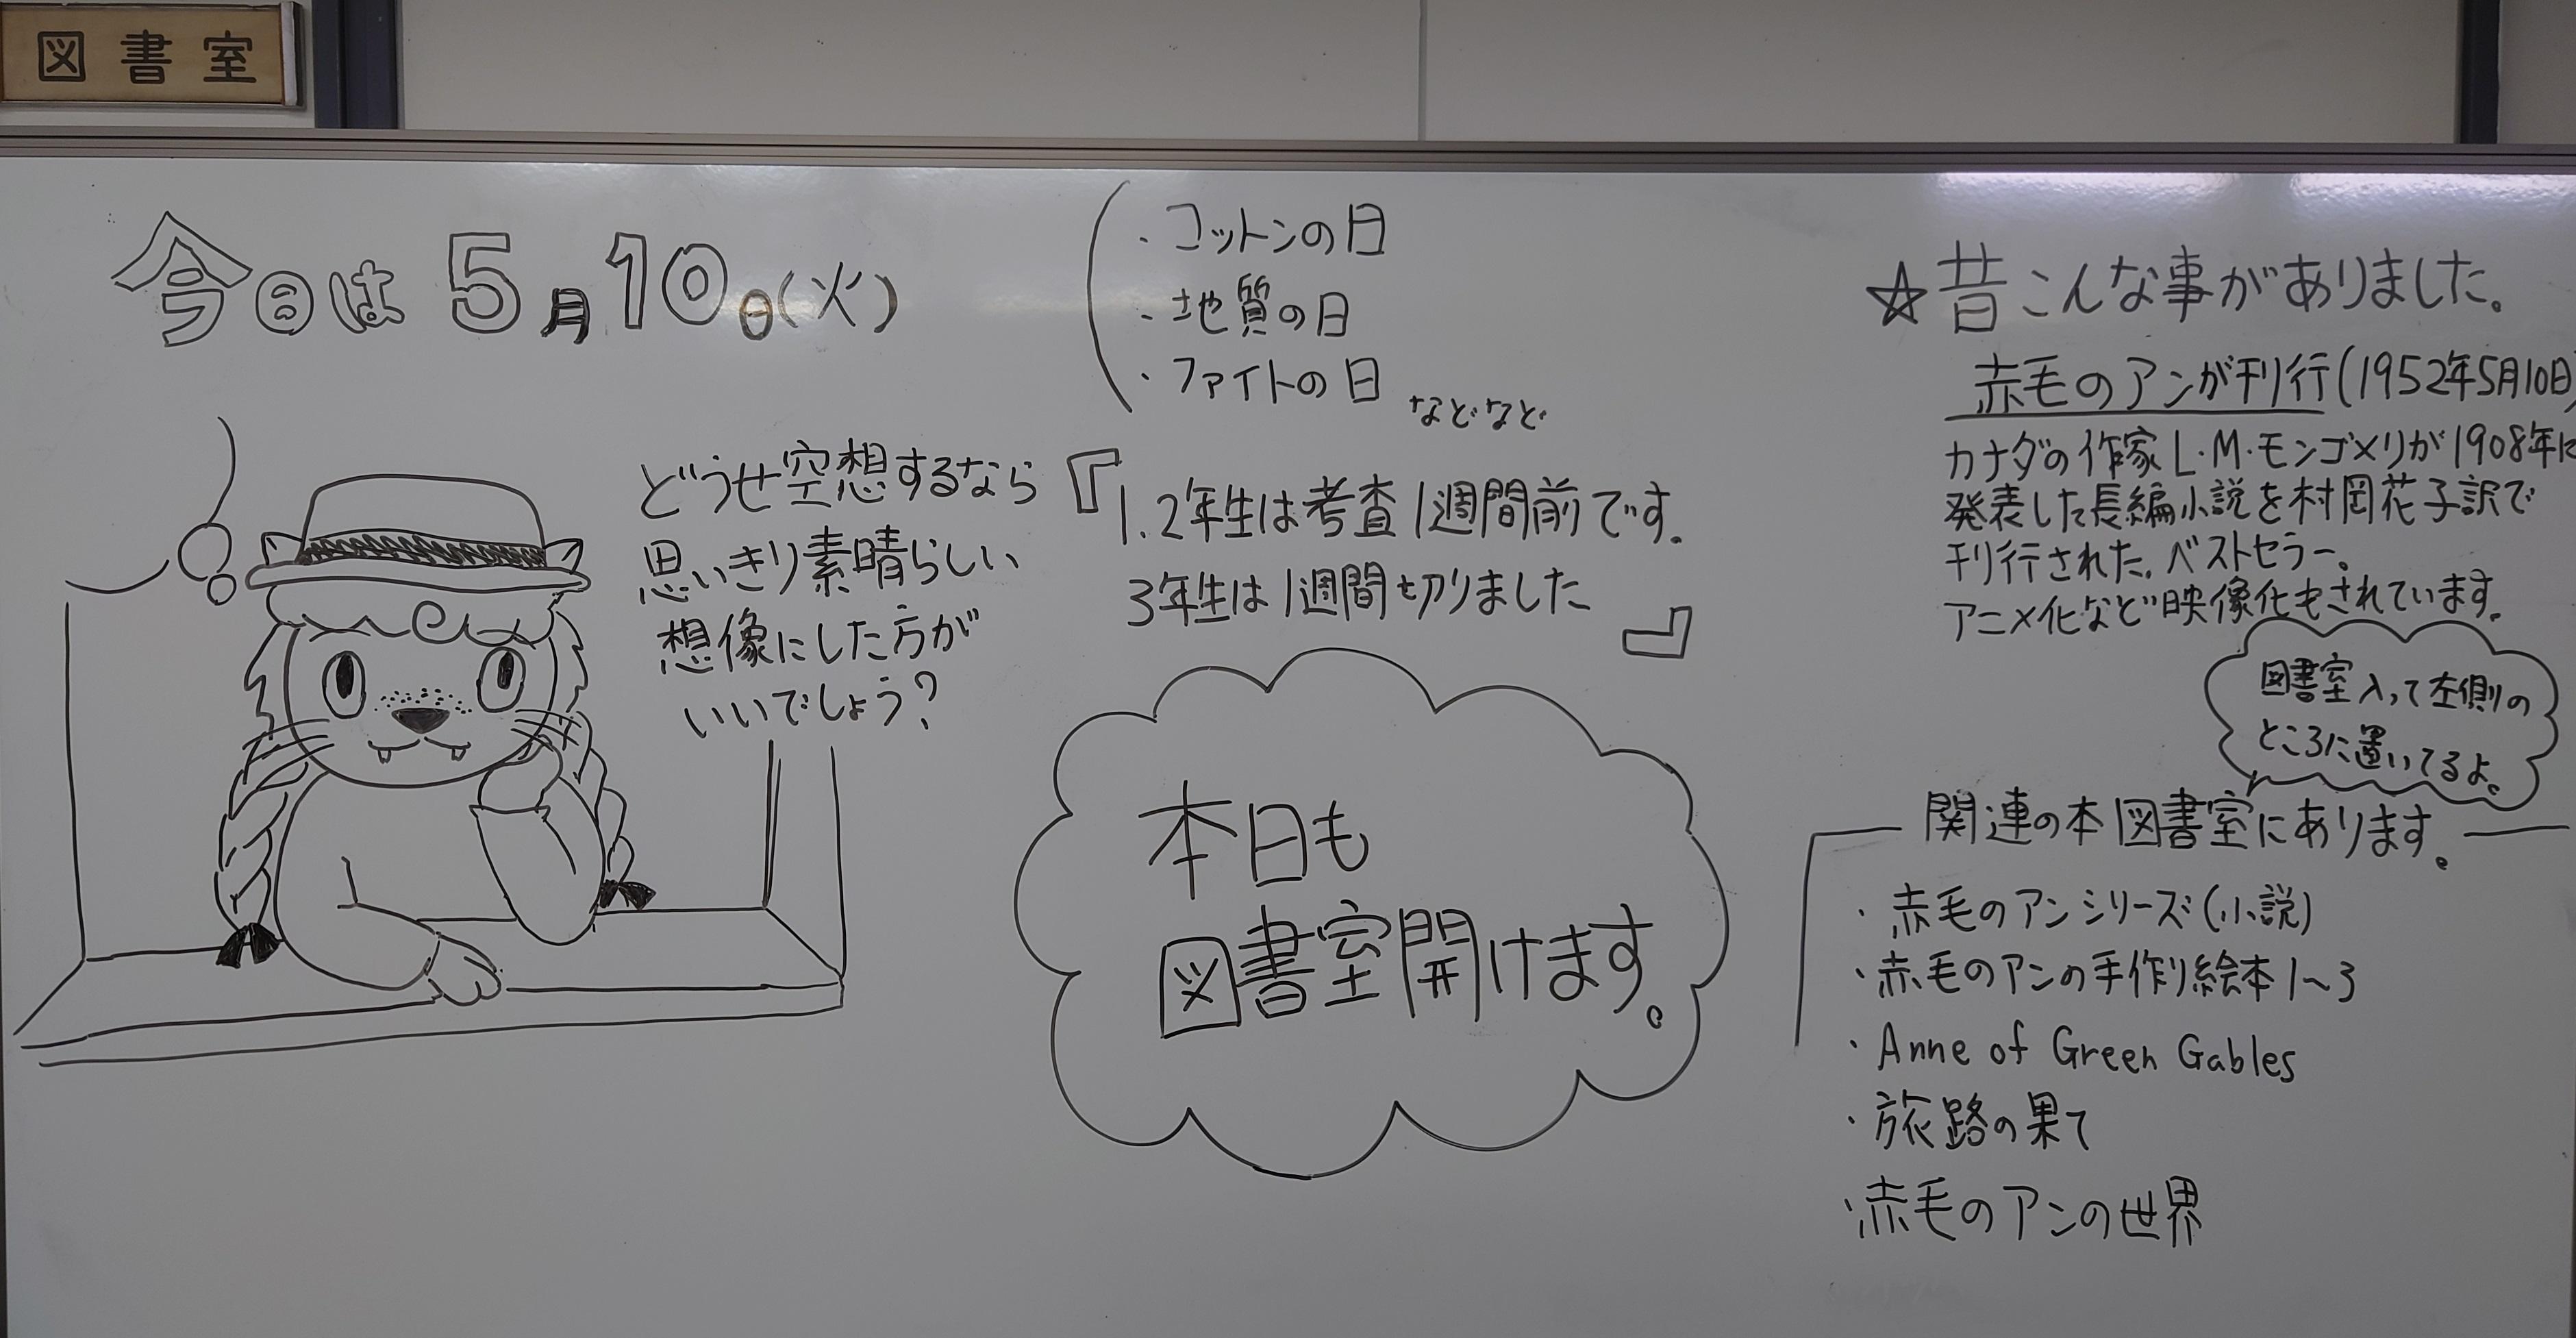 図書室
今日は5月10日(火)
・コットンの日
・地質の日
・ファイトの日
などなど
どうせ空想するなら
思いきり素晴らしい
想像にした方が
いいでしょう?
『1.2年生は考査1週間前です。
3年生は1週間切りました』
本日も
図書室開けます。
☆昔こんな事がありました。
赤毛のアンが刊行(1952年5月10日)
カナダの作家L・M・モンゴメリが1908年に
発表した長編小説を村岡花子訳で
刊行された。ベストセラー。
アニメ化など映像化もされています。
図書室入って左側の
ところに置いてるよ。
関連の本図書室にあります。
・赤毛のアンシリーズ(小説)
・赤毛のアンの手作り絵本1~3
・Anne of Green Gables
・旅路の果て
・赤毛のアンの世界